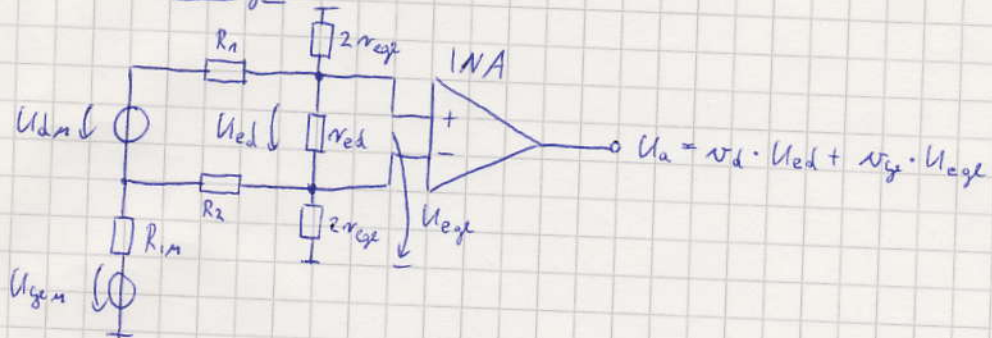 R₁
2r_egl
INA
U_dM
U_ed
r_ed
+
−
U_a = v_d · U_ed + v_gl · U_egl
R₂
2r_egl
U_egl
R_iM
U_glM